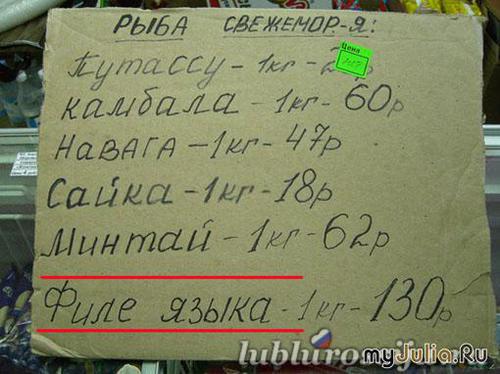 РЫБА СВЕЖЕМОР-Я:
Цена
Путассу - 1кг -
камбала - 1кг - 60р
НАВАГА - 1кг - 47р
Сайка - 1кг - 18р
Минтай - 1кг - 62р
Филе языка - 1кг - 130р
myJulia.Ru